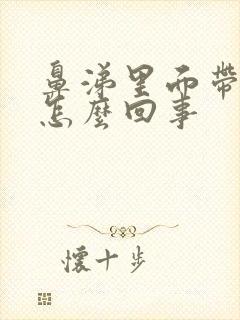 鼻涕里面带
怎麼回事
懷十步